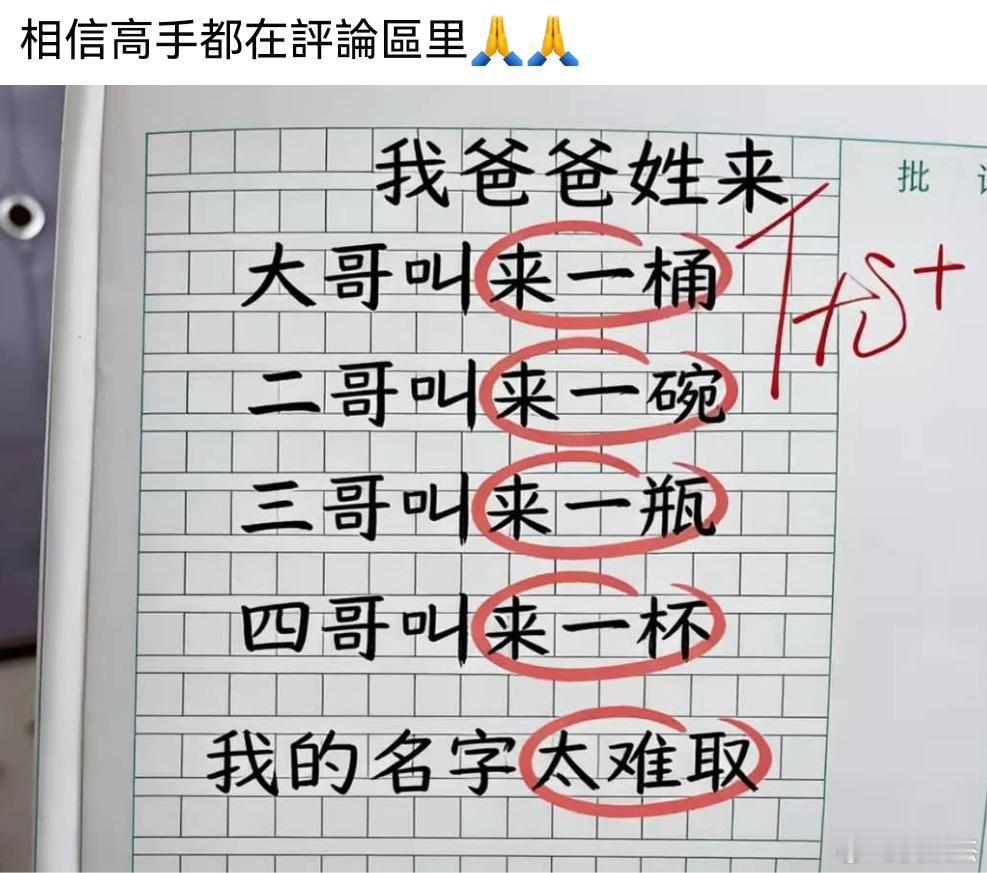 相信高手都在評論區里🙏🙏
我爸爸姓来
批
大哥叫来一桶
优+
二哥叫来一碗
三哥叫来一瓶
四哥叫来一杯
我的名字太难取